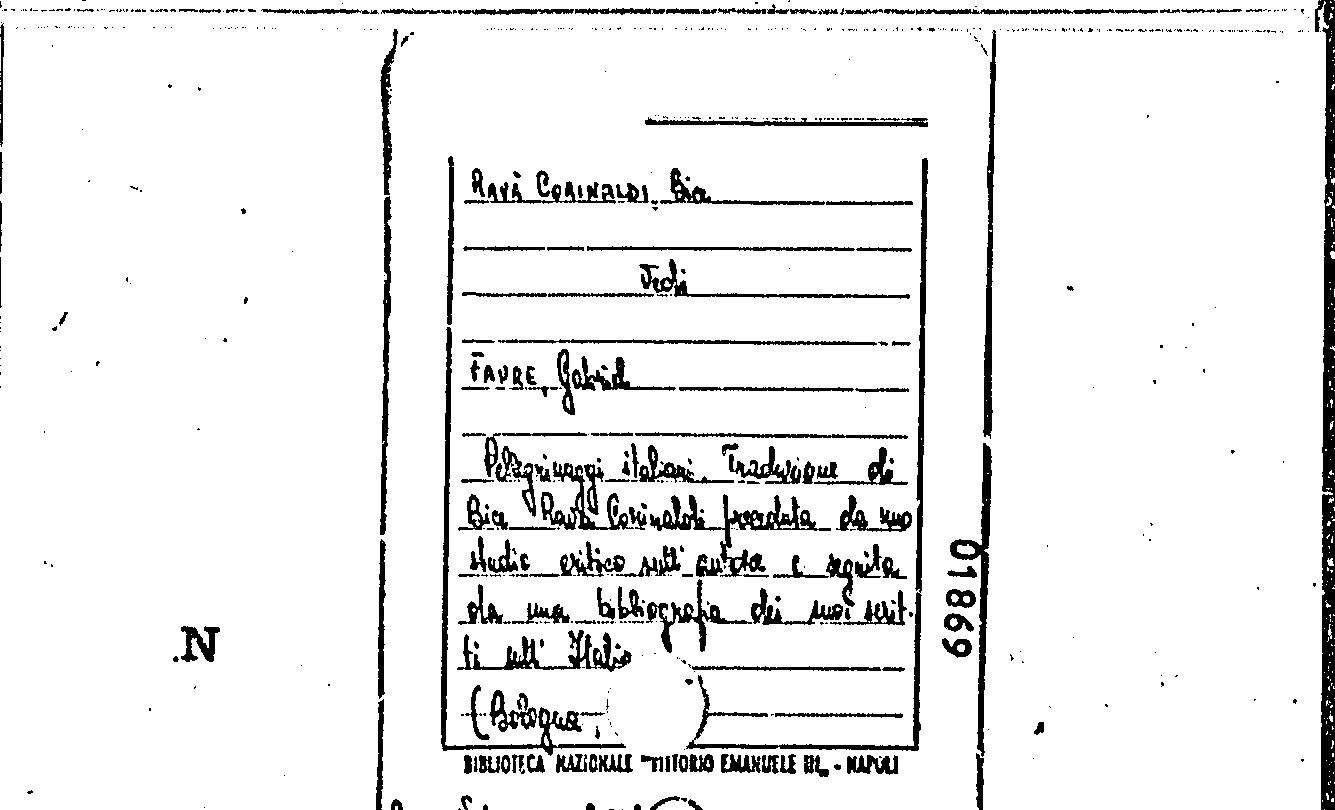 RAVÀ CORINALDI, Bice
Vedi
FAURE, Gabriel
Pellegrinaggi italiani. Traduzione di
Bice Ravà Corinaldi preceduta da uno
studio critico sull'autore e seguita
da una bibliografia dei suoi scrit-
ti sull'Italia
(Bologna,
01869
N
BIBLIOTECA NAZIONALE "VITTORIO EMANUELE III" - NAPOLI